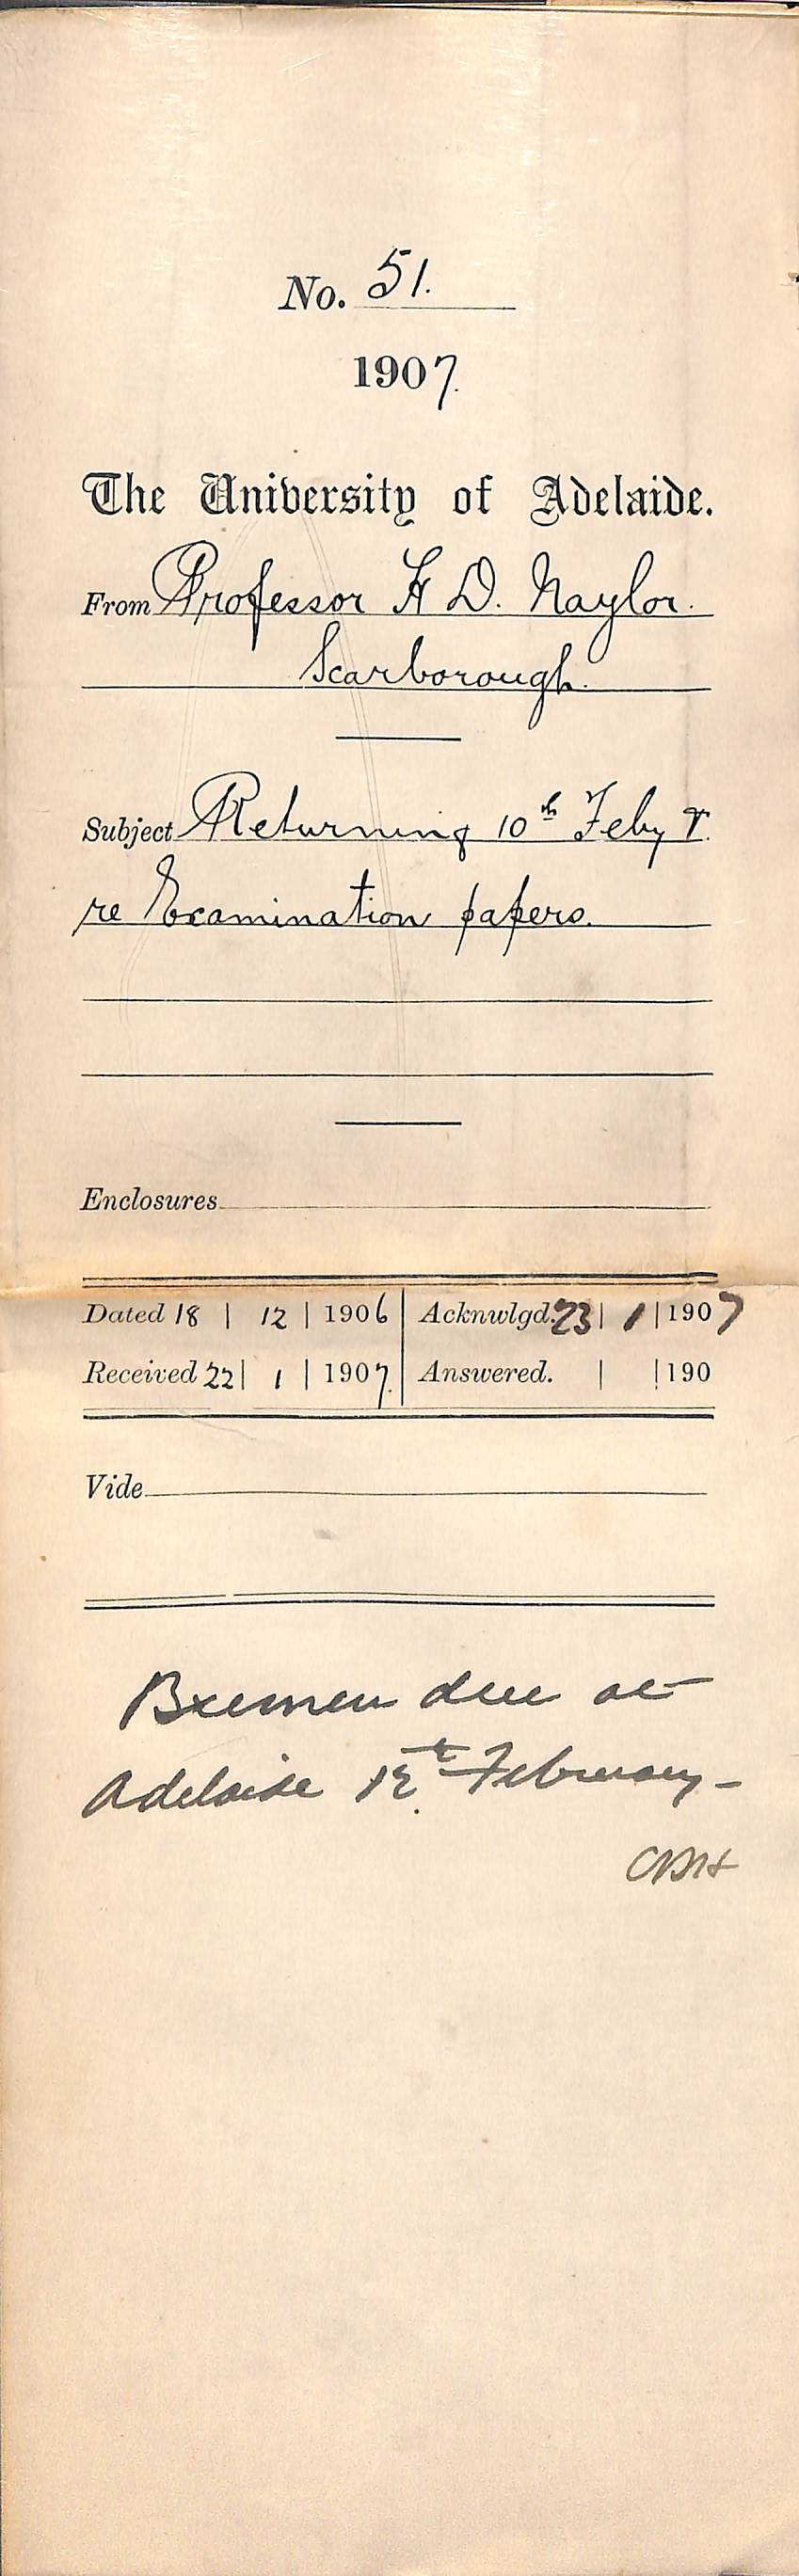 No. 51.
1907.
The University of Adelaide.
From Professor H D. Naylor.
Scarborough.
Subject Returning 10th Feby &
re Examination papers.
Enclosures
Dated 18 | 12 | 1906 | Acknwlgd. 23 | 1 | 1907
Received 22 | 1 | 1907. | Answered. | | 190
Vide
Bremen due at
Adelaide 12th February -